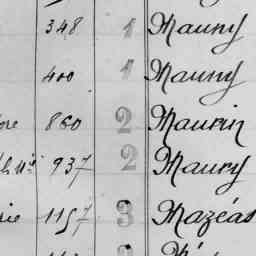 348 1 Mauny
400 1 Mauny
860 2 Maurin
937 2 Maury
1157 3 Mazéas